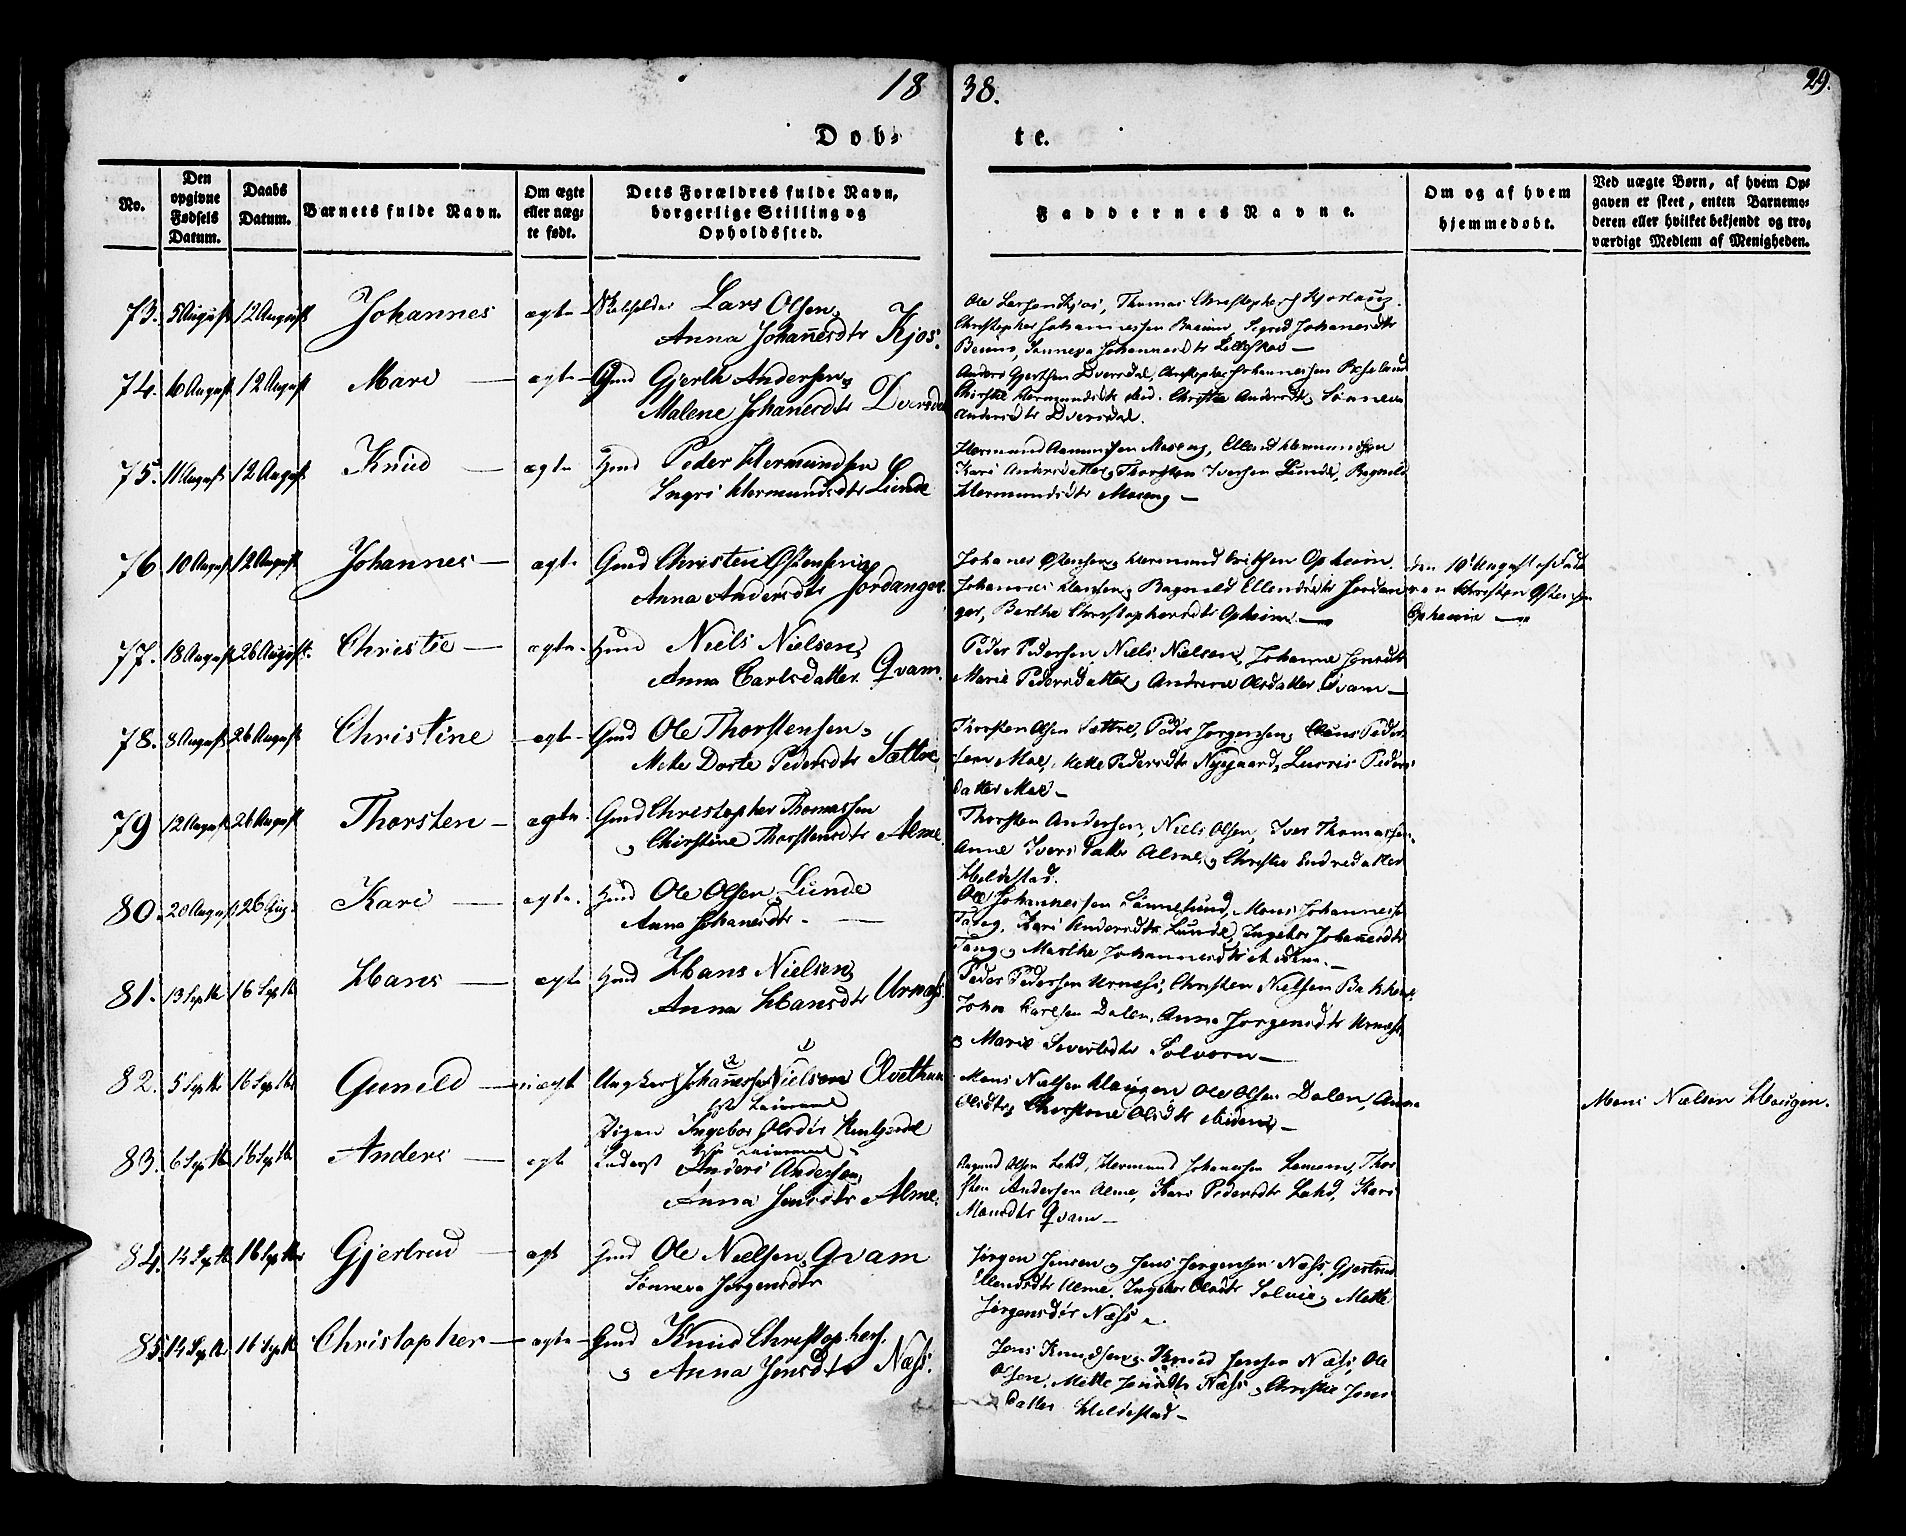 1838.
29.
Døbte.
No.
Den opgivne Fødsels Datum.
Daabs Datum.
Barnets fulde Navn.
Om ægte eller uægte født.
Dets Forældres fulde Navn, borgerlige Stilling og Opholdssted.
Faddernes Navne.
Om og af hvem hjemmedøbt.
Ved uægte Børn, af hvem Opgaven er skeet, enten Barnemoderen eller hvilket bekjendt og troværdigt Medlem af Menigheden.
73. 5 August 12 August Johannes ægte Lars Olsen,
Anna Johan̄esdtr Kjos.
Ole Larsen Kjos, Thomas
Christopher Johannessen Sigrid Johanesdtr
Sønneva Johannesdtr
74. 6 August 12 August Mari — ægte Gmd Gjerth Andersen,
Malene Johanesdtr Dversdal
Anders Gjertsen Dversdal, Christopher Johannessen
Hermundsdtr Christie Andersdtr, Sønneva
Andersdtr Dversdal.
75. 11 August 12 August Knud — ægte Gmd Peder Hermundsen
Ingri Hermundsdtr Lunde
Hermund Aamundsen Moseng, Ellend Hermundsen
Kari Andersdatter, Thorsten Iversen Lunde, Ragnild
Hermundsdtr Moseng —
76 10 August 12 August Johannes — ægte Gmd Christen Østensen
Anna Andersdtr Jordanger.
Johanes Østensen, Hermund Opheim
Johannes Hansen, Ragnild Ellendsdtr Jordan
ger, Berthe Christophersdtr Opheim. —
den 10 August af Fade
ren Christen Østensen
Opheim —
77. 18 August 26 August. Christie — ægte. Gmd Niels Nielsen,
Anna Carlsdatter. Qvam.
Peder Pedersen, Niels Nielsen, Johanne Jensdtr
Marie Pedersdatter, Andrine Olsdatter Qvam —
78. 8 August 26 August Christine — ægte Gmd Ole Thorstensen,
Mette Dorte Pedersdtr Sættre
Thorsten Olsen Sættre, Peder Jørgensen, Peder
sen Moe, Mette Pedersdtr Nygaard, Peders
datter Moe —
79 12 August 26 August Thorsten — ægte. Gmd Christopher Thomassen
Christine Thorstensdtr Alme.
Thorsten Andersen, Niels Olsen, Iver Thomassen
Anne Ivers Datter Alme, Christie Endredatter
Heldestad.
80. 20 August 26 Aug. Kari — ægte. Gmd Ole Olsen Lunde
Anna Johanesdtr. —
Ole Johannessen Mons Johannessen
Tang, Kari Andersdtr Lunde, Ingebor Johan̄esdtr
Tang, Marthe Johannesdtr
81. 13 Septb 16 Septb Hans — ægte Gmd Hans Nielsen,
Anna Hansdtr Urnæss
Peder Pedersen Urnæss, Christen Nielsen Bakken
Johan Carlsen Dalen, Anna Jørgensdtr Urnæss,
Marie Sivertsdtr Solvorn —
82. 5 Septb 16 Septb Gunild — uægt Ungkarl Johan̄essen Nielsen
Pigen Ingebor Olsdtr
Mons Nielsen Haugen Ole Olsen Dalen, Anna
Olsdtr, Olsdtr —
Mons Nielsen Haugen.
83. 6 Septb 16 Septb Anders — ægte Inderst Anders Andersen,
Anna Jensdtr Alme.
Aamund Olsen Lehd, Hermund Johanessen Thor
sten Andersen Alme, Kari Pedersdtr Lehd, Kari
Monsdtr Qvam —
84. 14 Septb 16 Septb Gjertrud — ægt Gmd Ole Nielsen, Qvam
Sønneva Jørgensdtr
Jørgen Jensen, Jens Jørgensen Næss Gjertrud
Ellendsdtr Alme, Ingebor Mette
Jørgensdtr Næss.
85. 14 Septb 16 Septb Christopher — ægte Gmd Knud Christophers.
Anna Jensdtr Næss.
Jens Knudsen, Knud Jensen Næss, Ole
Olsen, Mette Jensdtr Næss, Christie Jens
datter Heldestad —